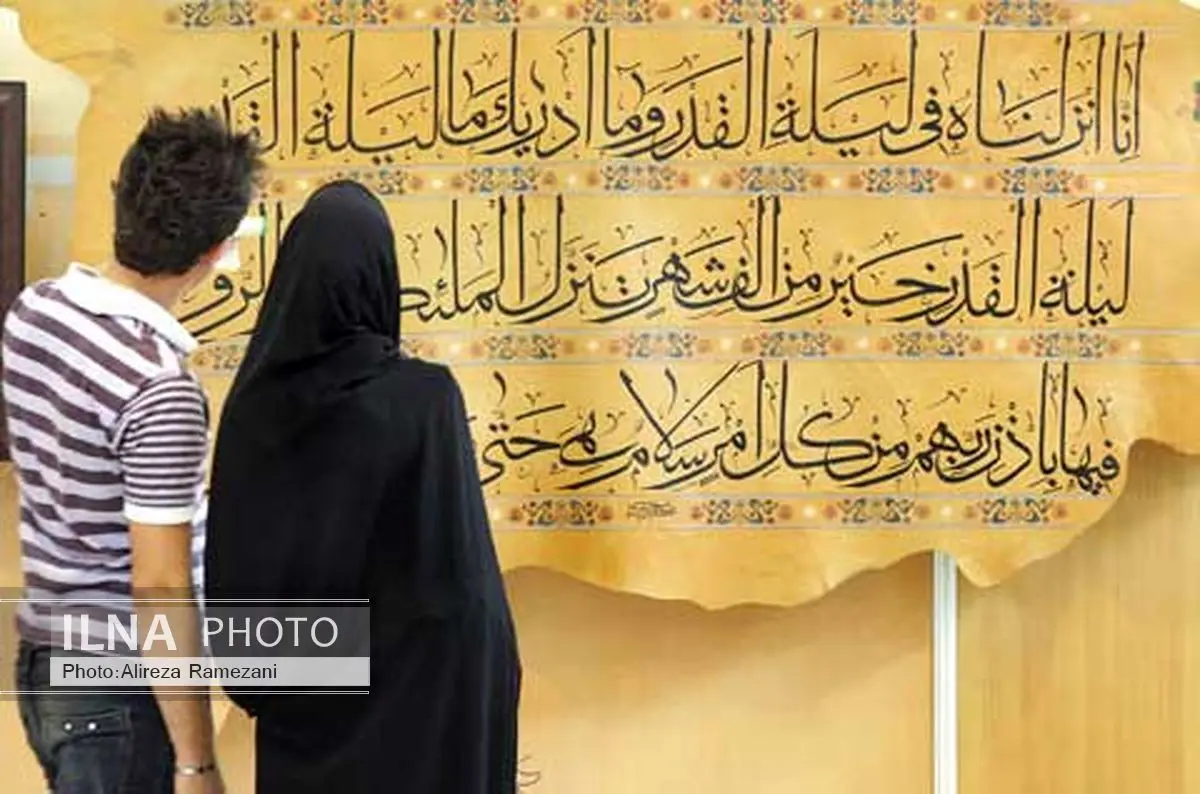 انا انزلناه فی لیلة القدر وما ادریك ما لیلة القد
لیلة القدر خیر من الف شهر تنزل الملئك الرو
فیها باذن ربهم من كل امر سلام هی حتی
ILNA PHOTO
Photo:Alireza Ramezani